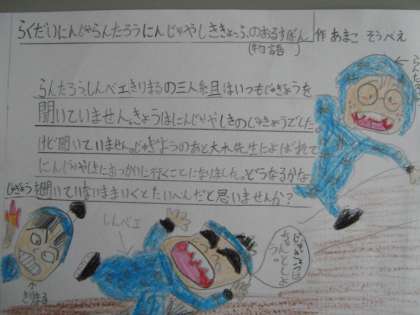 らくだいにんじゃらんたろうにんじゃやしききょうふのおるすばん 作 あまこ そうべえ
(物語)
らんたろうしんベエきりまるの三人組はいつもじゅぎょうを
聞いていません。きょうはにんじゃやしきのじゅぎょうでした。
けど聞いていません。じゅぎょうのあと大木先生によばれて
にんじゃやしきにおつかいに行くことになりました。どうなるかな
じゅぎょう聞いていないままいくとたいへんだと思いませんか?
しんベエ
きりまる
じゅぎょうは
ちゃんとしよ
う。